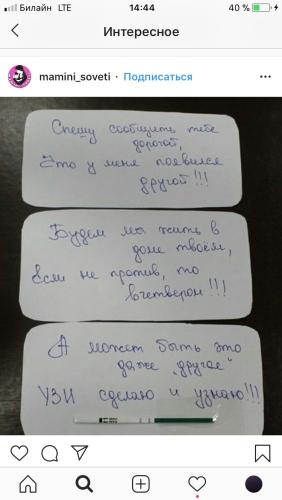 Билайн LTE 14:44 40 %
Интересное
mamini_soveti · Подписаться
Спешу сообщить тебе
дорогой,
Что у меня появился
другой!!!
Будем мы жить в
доме твоём,
Если не против, то
вчетвером!!!
А может быть это
даже „другая"
УЗИ сделаю и узнаю!!!